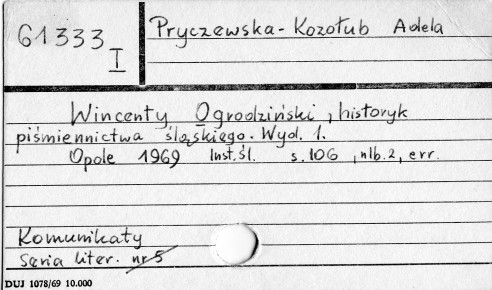 61333
I
Pryczewska-Kozołub Adela
Wincenty Ogrodziński, historyk
piśmiennictwa śląskiego. Wyd. 1.
Opole 1969 Inst. śl. s. 106, nlb. 2, err.
Komunikaty
Seria liter. nr 5
DUJ 1078/69 10.000